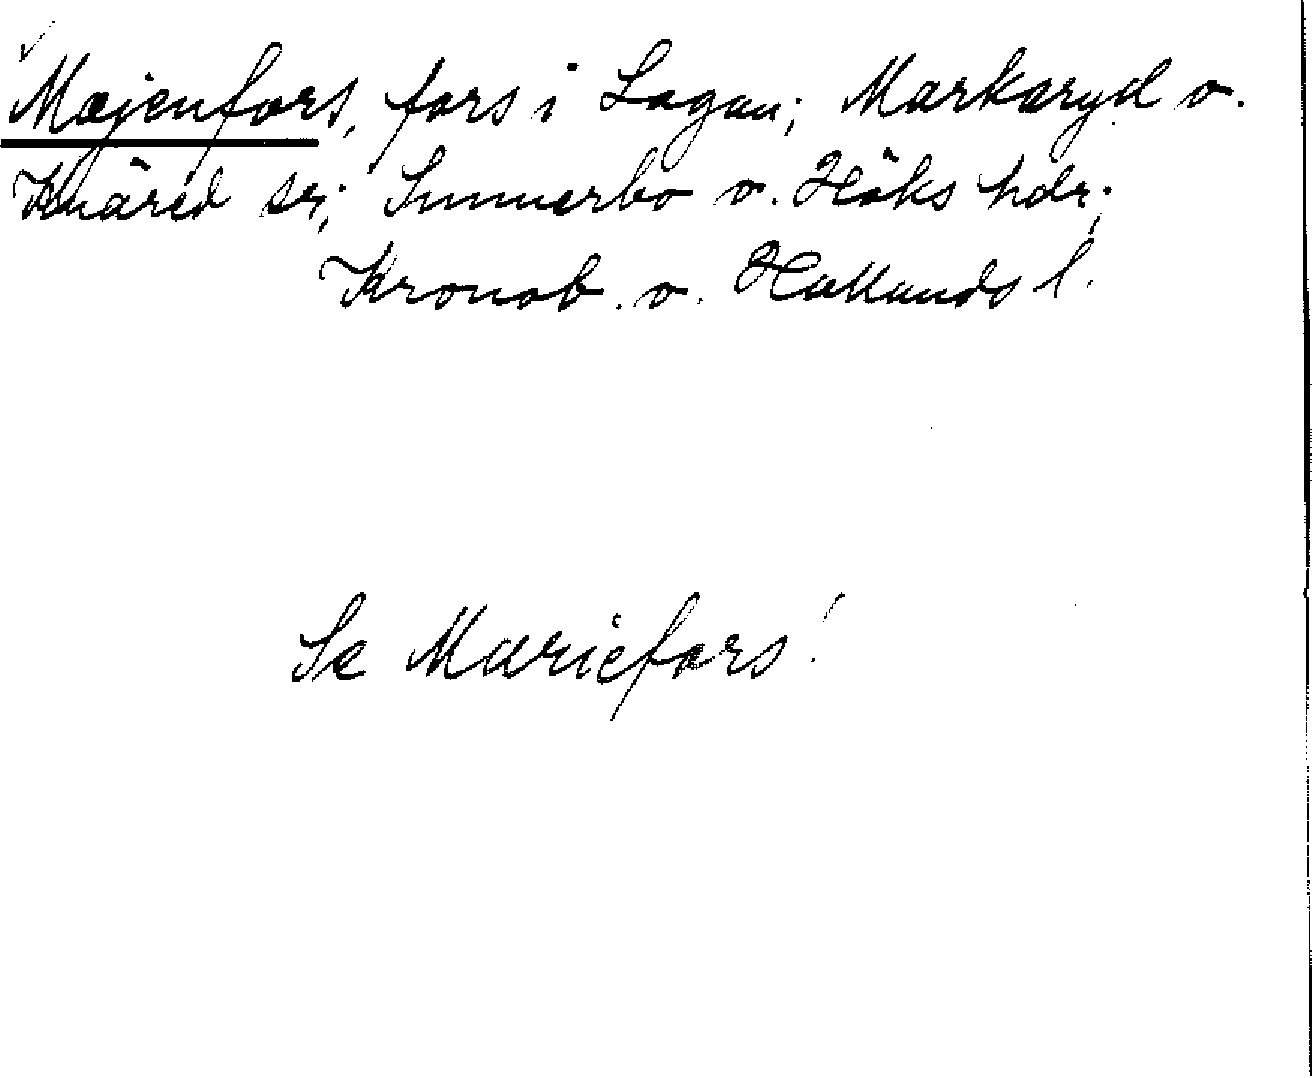 Majenfors, fors i Lagan; Markaryd o.
Knäred sn; Sunnerbo o. Höks hdr;
Kronob. o. Hallands l.
Se Mariefors!